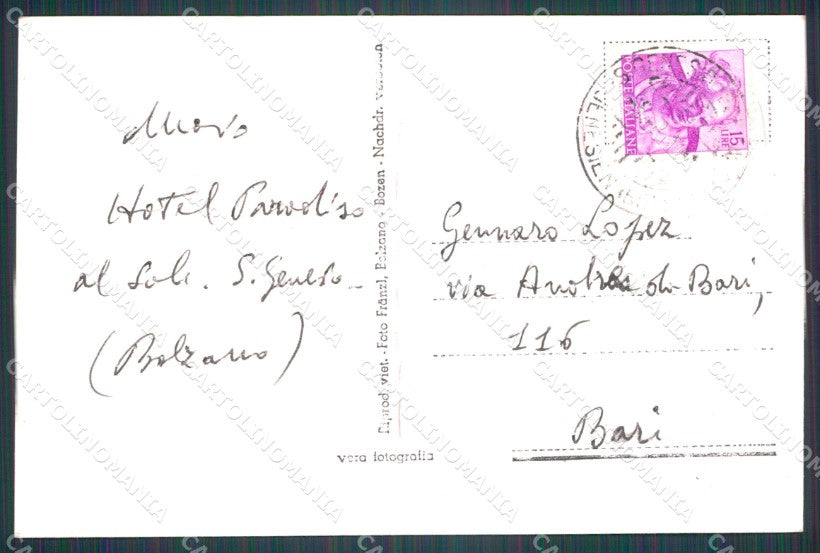 Mario
Hotel Paradiso
al Sole. S. Genesio
(Bolzano)
Riprod. viet. - Foto Fränzl, Bolzano - Bozen - Nachdr. verboten
vera fotografia
POSTE ITALIANE
15
LIRE
Gennaro Lopez
via Andrea da Bari,
116
Bari
CARTOLINOMANIA